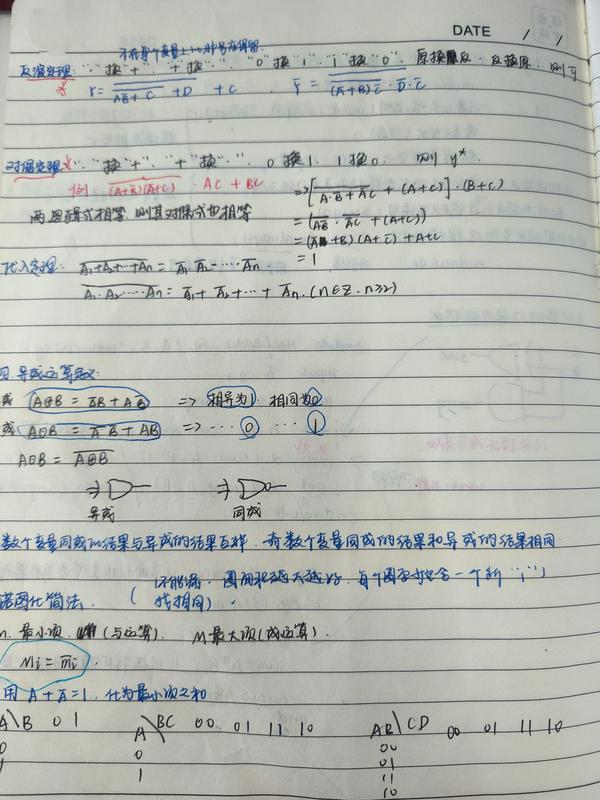 DATE / /
不在每个变量上的非号应保留
反演定理: "·"换"+". "+"换"·". "0"换"1". "1"换"0". 原换反. 反换原. 则
Y = \overline{\overline{AB + C} + D} + C   \overline{Y} = \overline{\overline{(\overline{A}+\overline{B})\overline{C}} · \overline{D}} · \overline{C}
对偶定理: "·"换"+" "+"换"·". 0换1. 1换0. 则 y*.
例 \overline{(A+B)(A+C)} · AC + BC
=> [\overline{A·B + AC} + (A+C)] · (B+C)
两逻辑式相等, 则其对偶式也相等
代入定理: \overline{A1+A2+…+An} = \overline{A1}·\overline{A2}·…·\overline{An}
= 1
\overline{A1·A2·…·An} = \overline{A1} + \overline{A2} + … + \overline{An}. (n∈Z. n≥2)
四. 异或运算定义:
或 A⊕B = \overline{A}B + A\overline{B} => 相异为1 相同为0
或 A⊙B = \overline{A}\,\overline{B} + AB => … 0 … 1
A⊙B = \overline{A⊕B}
异或 同或
数个变量同或的结果与异或的结果互补. 奇数个变量同或的结果和异或的结果相同
诺图化简法. ( 不能漏. 圈面积越大越好. 每个圈至少包含一个新"1"
找相同) .
最小项. (与运算). M最大项(或运算).
Mi = \overline{mi} .
用 A + \overline{A} = 1. 化为最小项之和
A\B 0 1
0
1
A\BC 00 01 11 10
0
1
AB\CD 00 01 11 10
00
01
11
10